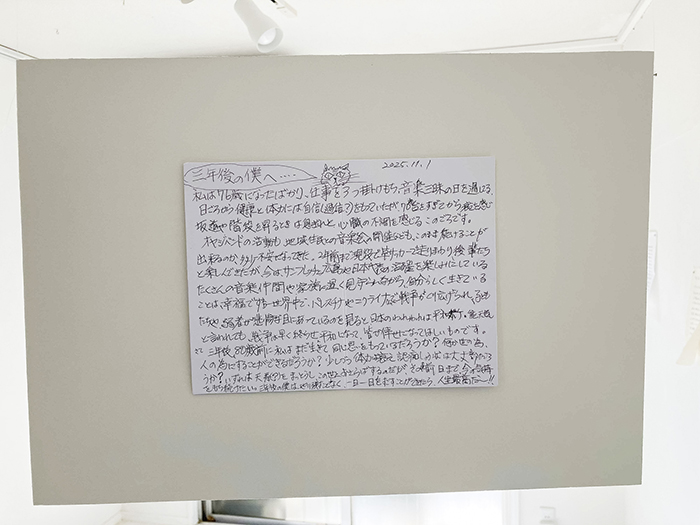 三年後の僕へ…. 2025.11.1
私は76歳になったばかり、仕事を3つ掛けもち、音楽三昧の日を過ごす。
日ごろから健康と体力には自信(過信?)をもっていたが、76歳をすぎてから
坂道や階段を昇るときは息切れと心臓の不調を感じるこのごろです。
オヤジバンドの活動も地域住民との音楽会の開催なども、このまま続けることが
出来るのか、かなり不安になってきた。2年前まで現役で草サッカーで走りまわり後輩たち
と楽しんできたが、今はサンフレッチェ広島や日本代表の活躍を楽しみにしている
たくさんの音楽仲間や家族に温く見守られながら、自分らしく生きている
ことは、幸福です。世界中で、パレスチナやウクライナなどで戦争がくり広げられ、子ども
たちや、弱者が悲惨な目にあっているのを見ると、日本のわれわれは平和
と言われても、戦争は早く終らせ平和になって、皆が倖せになってほしいものです。
さて 三年後、80歳前に私はまだ生きて同じ思いをもっているだろうか? 何か世の為、
人の為にすることができるだろうか? 少しづつ体力は衰えて、認知レベルは大丈夫だろ
うか? いずれは天国(?)を まっとうし、この世とおさらばするのだが、その前日まで、今の気持
をもち続けたい。三年後の僕は、やり残すことなく、一日一日をすごすことができたら、人生最高だ〜!!